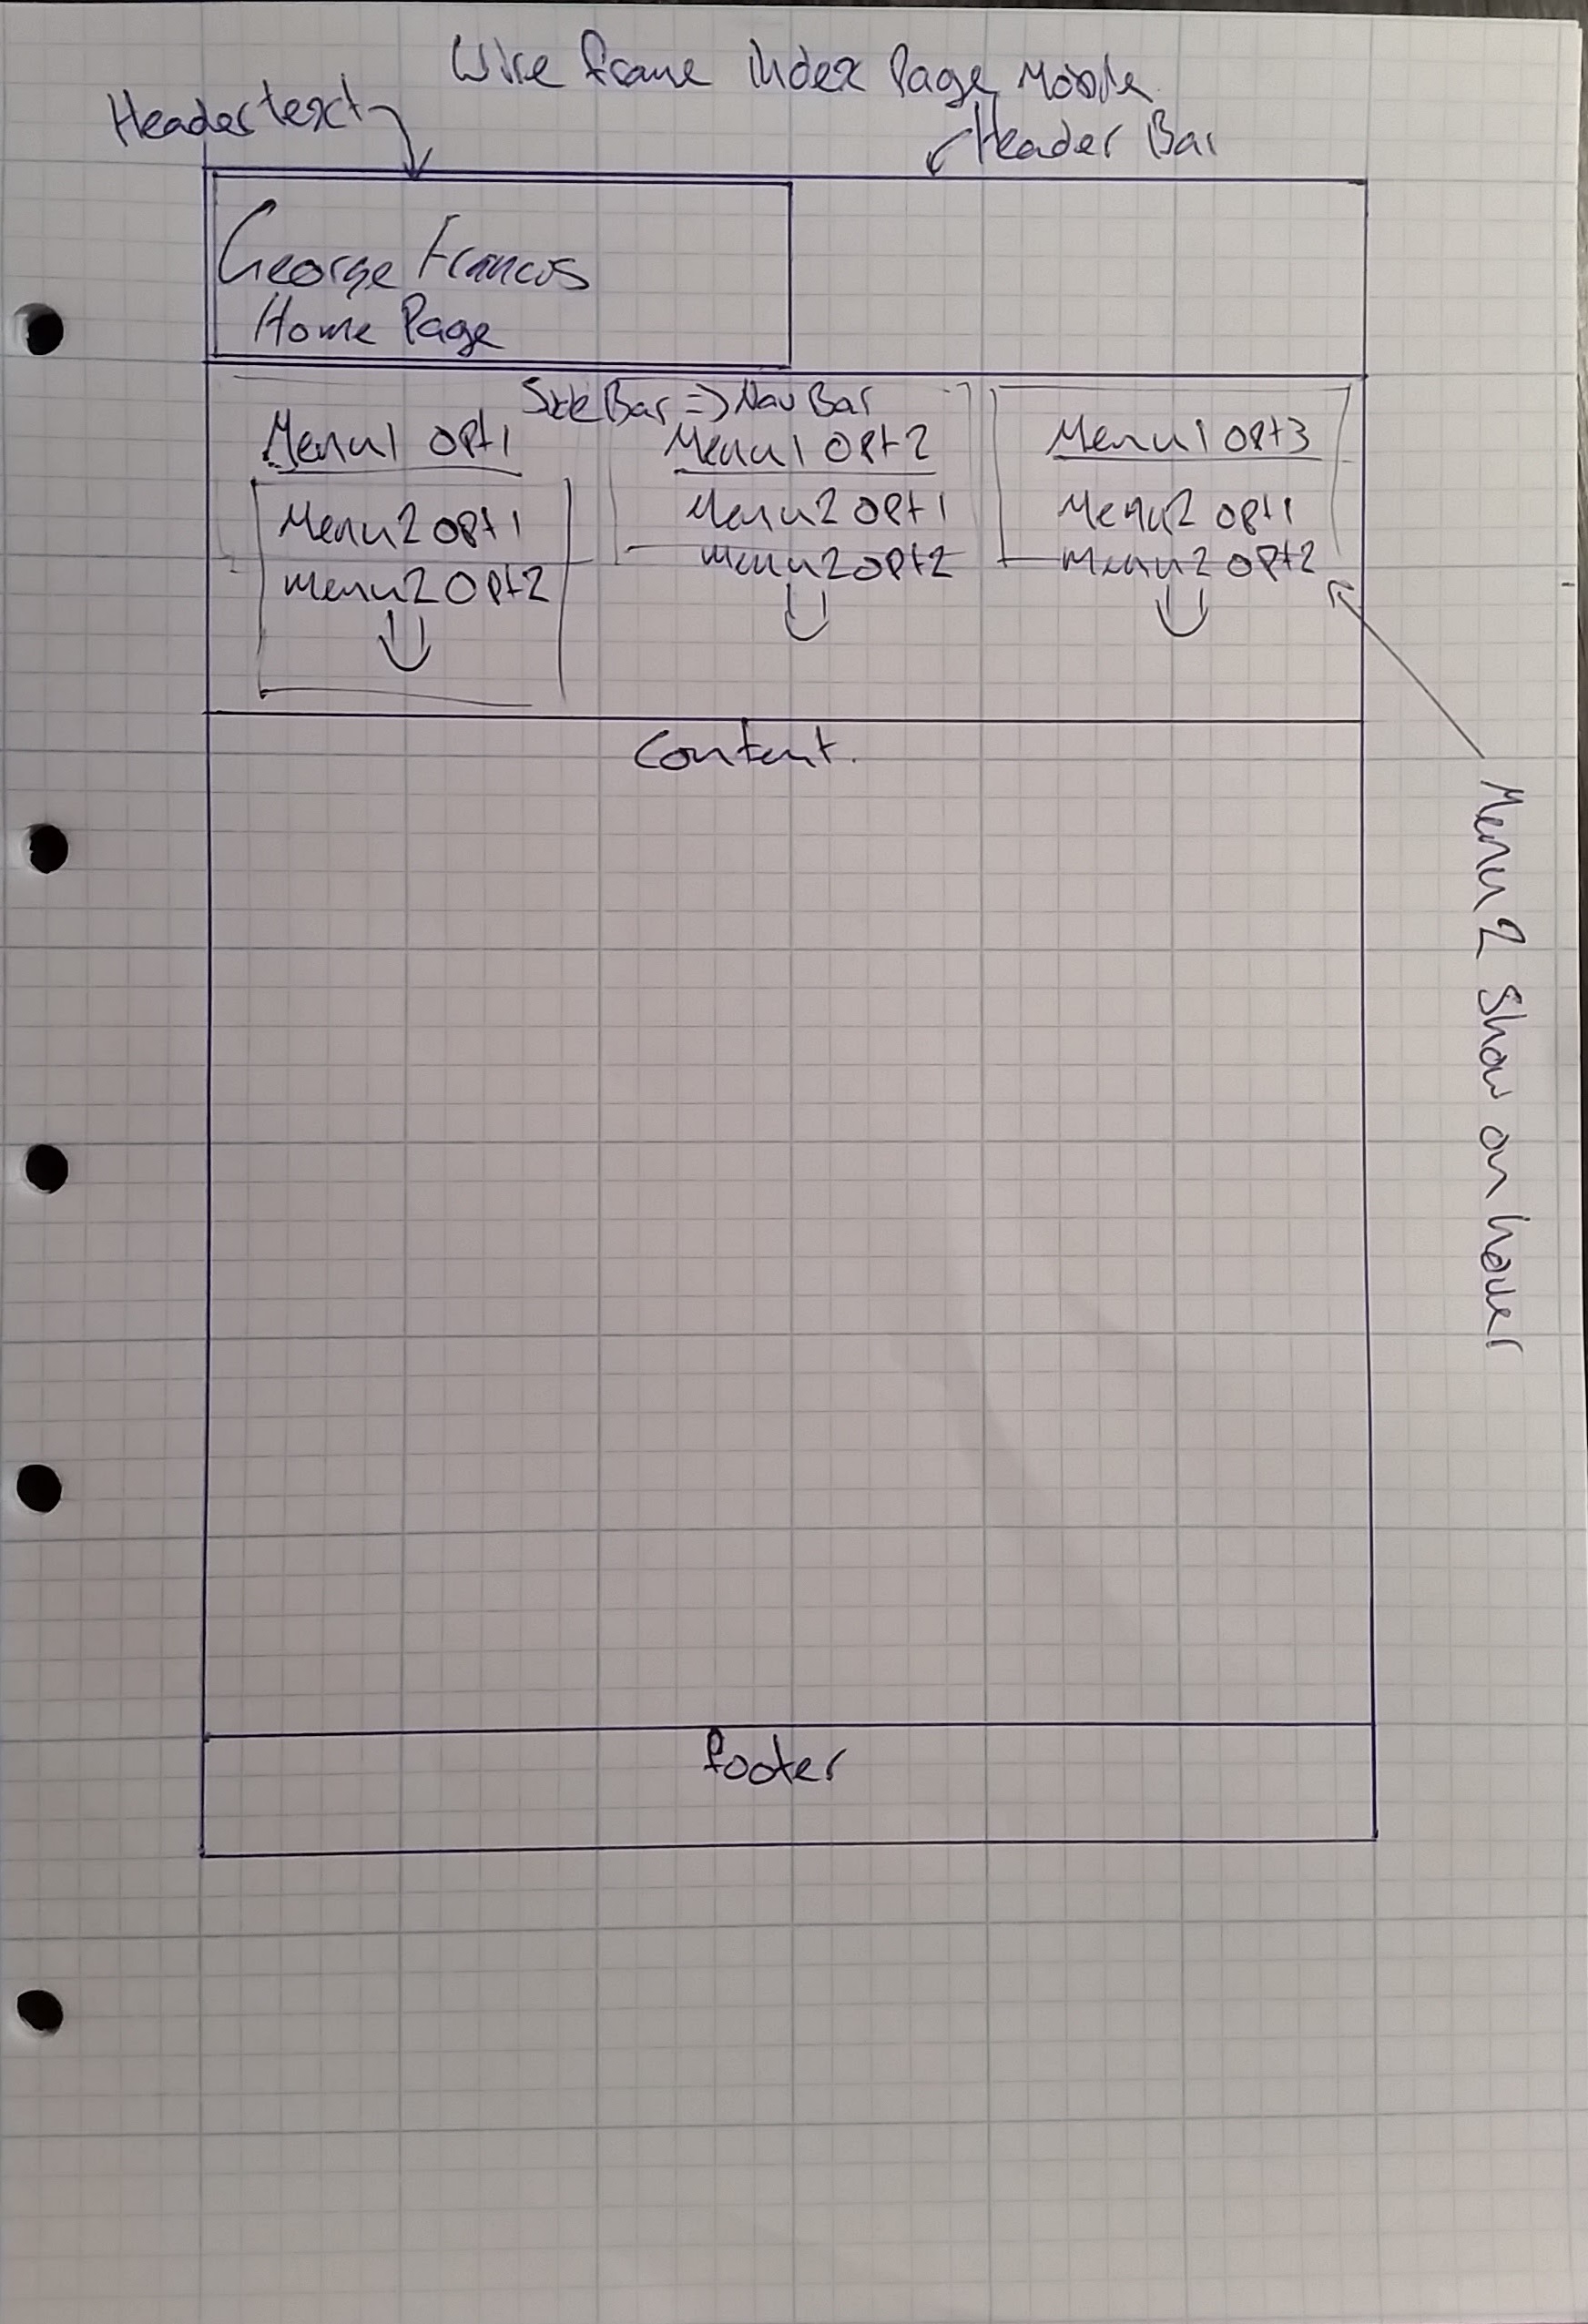 Wire frame Index Page Mobile
Header text
Header Bar
George Francis
Home Page
Side Bar => Nav Bar
Menu1 opt1
Menu2 opt1
Menu2 opt2
Menu1 opt2
Menu2 opt1
Menu2 opt2
Menu1 opt3
Menu2 opt1
Menu2 opt2
Content.
Menu2 Show on hover
footer